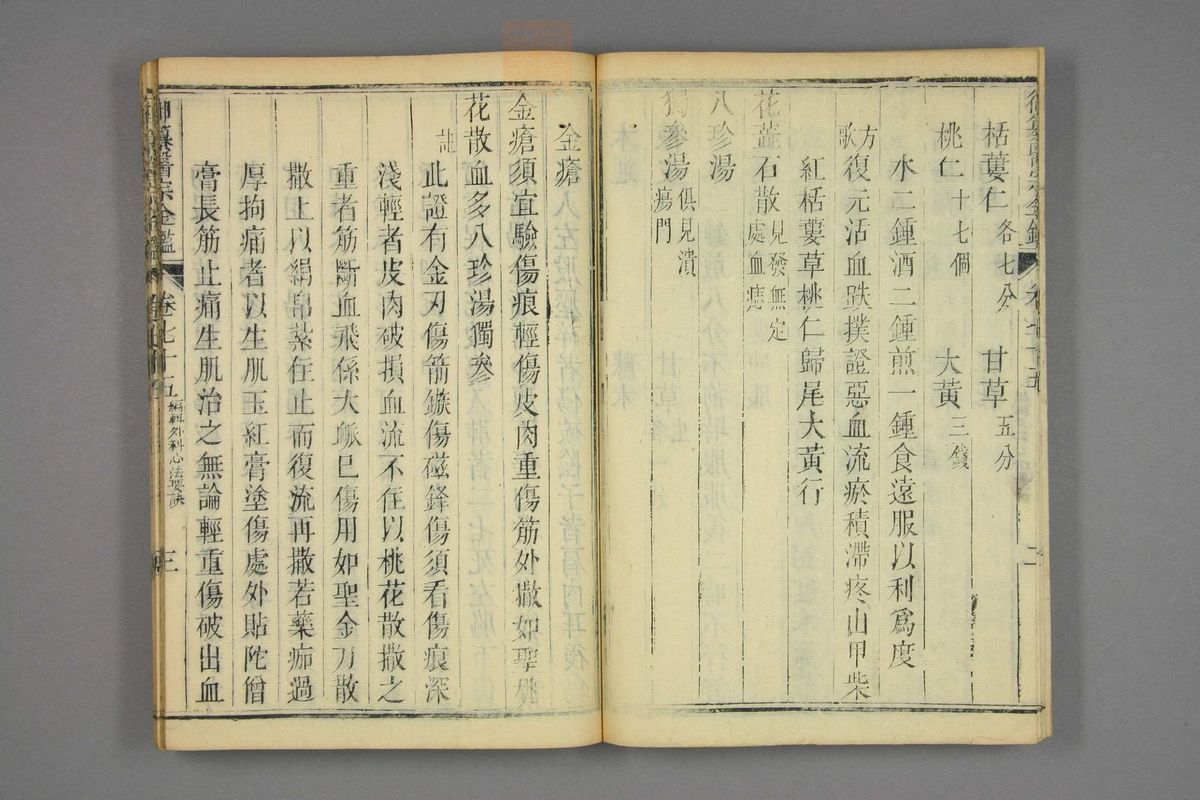 栝蔞仁各七分　甘草五分
桃仁十七個　大黃三錢
水二鍾酒二鍾煎一鍾食遠服以利爲度
方歌
復元活血跌撲證惡血流瘀積滯疼山甲柴
紅栝蔞草桃仁歸尾大黃行
花蕋石散見發無定處血疽
八珍湯
獨參湯俱見潰瘍門
金瘡
金瘡須宜驗傷痕輕傷皮肉重傷筋外撒如聖桃
花散血多八珍湯獨參
註
此證有金刃傷箭鏃傷磁鋒傷須看傷痕深
淺輕者皮肉破損血流不住以桃花散撒之
重者筋斷血飛係大脈已傷用如聖金刀散
撒上以絹帛紮住止而復流再撒若藥痂過
厚拘痛者以生肌玉紅膏塗傷處外貼陀僧
膏長筋止痛生肌治之無論輕重傷破出血
御纂醫宗金鑑
卷七十五
編輯外科心法要訣
三